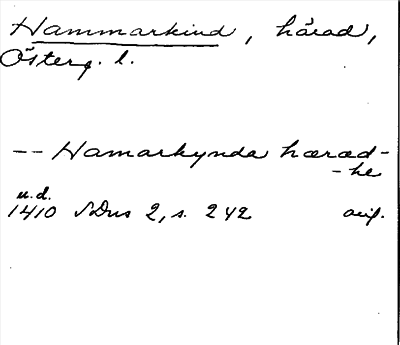 Hammarkind, härad,
Österg. l.
-- Hamarkynda hæræd-
-he
u.d.
1410 SDns 2, s. 242 avs.